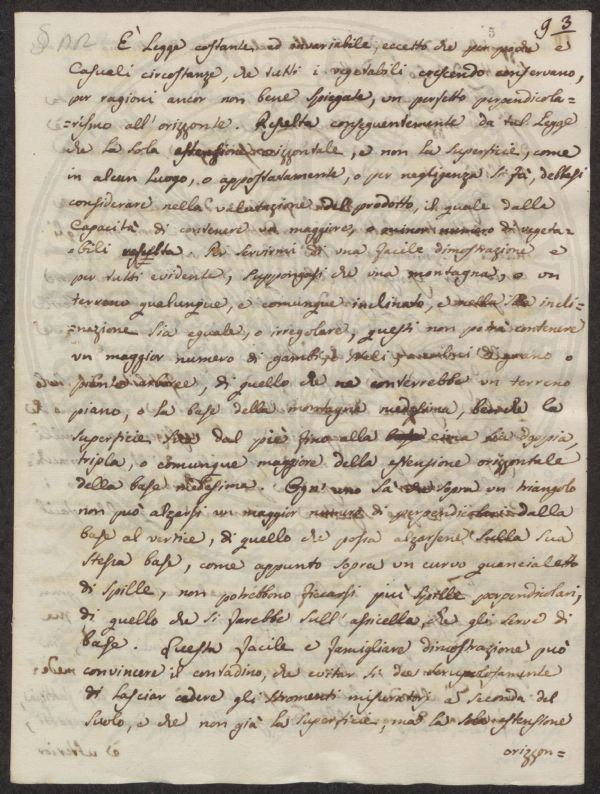 93
È Legge costante ed invariabile, eccetto che per poche e
Casuali circostanze, che tutti i vegetabili crescendo conservano,
per ragioni ancor non bene spiegate, un perfetto perpendicola=
=rismo all'orizzonte. Resulta conseguentemente da tal Legge
che la sola estensione orizzontale, e non la superficie, come
in alcun luogo, o appostatamente, o per negligenza si fà, debbasi
considerare nella valutazione del prodotto, il quale dalla
Capacità di contenere un maggiore, o minor numero di vegeta=
=bili resulta. Per servirmi di una facile dimostrazione e
per tutti evidente, suppongasi che una montagna, o un
terreno qualunque, e comunque inclinato, e incli=
=nazione sia eguale, o irregolare, questi non potrà contenere
un maggior numero di gambi, di grano o
piante arboree, di quello che ne conterrebbe un terreno
piano, o la base della montagna medesima, benchè la
superficie dal piè fino alla cima sia doppia,
tripla, o comunque maggiore della estensione orizzontale
della base medesima. Ogn'uno sà che sopra un triangolo
non può alzarsi un maggior numero di perpendicolari dalla
base al vertice, di quello che possa alzarsene sulla sua
stessa base, come appunto sopra un curvo guancialetto
di spille, non potrebbono ficcarsi più spille perpendicolari,
di quello che si farebbe sull'assicella, che gli serve di
base. Questa facile e famigliare dimostrazione può
convincere il contadino, che evitar si dee scrupolosamente
di lasciar cadere gli stromenti misuratori a seconda del
suolo, e che non già la superficie, ma la sola estensione
orizzon=